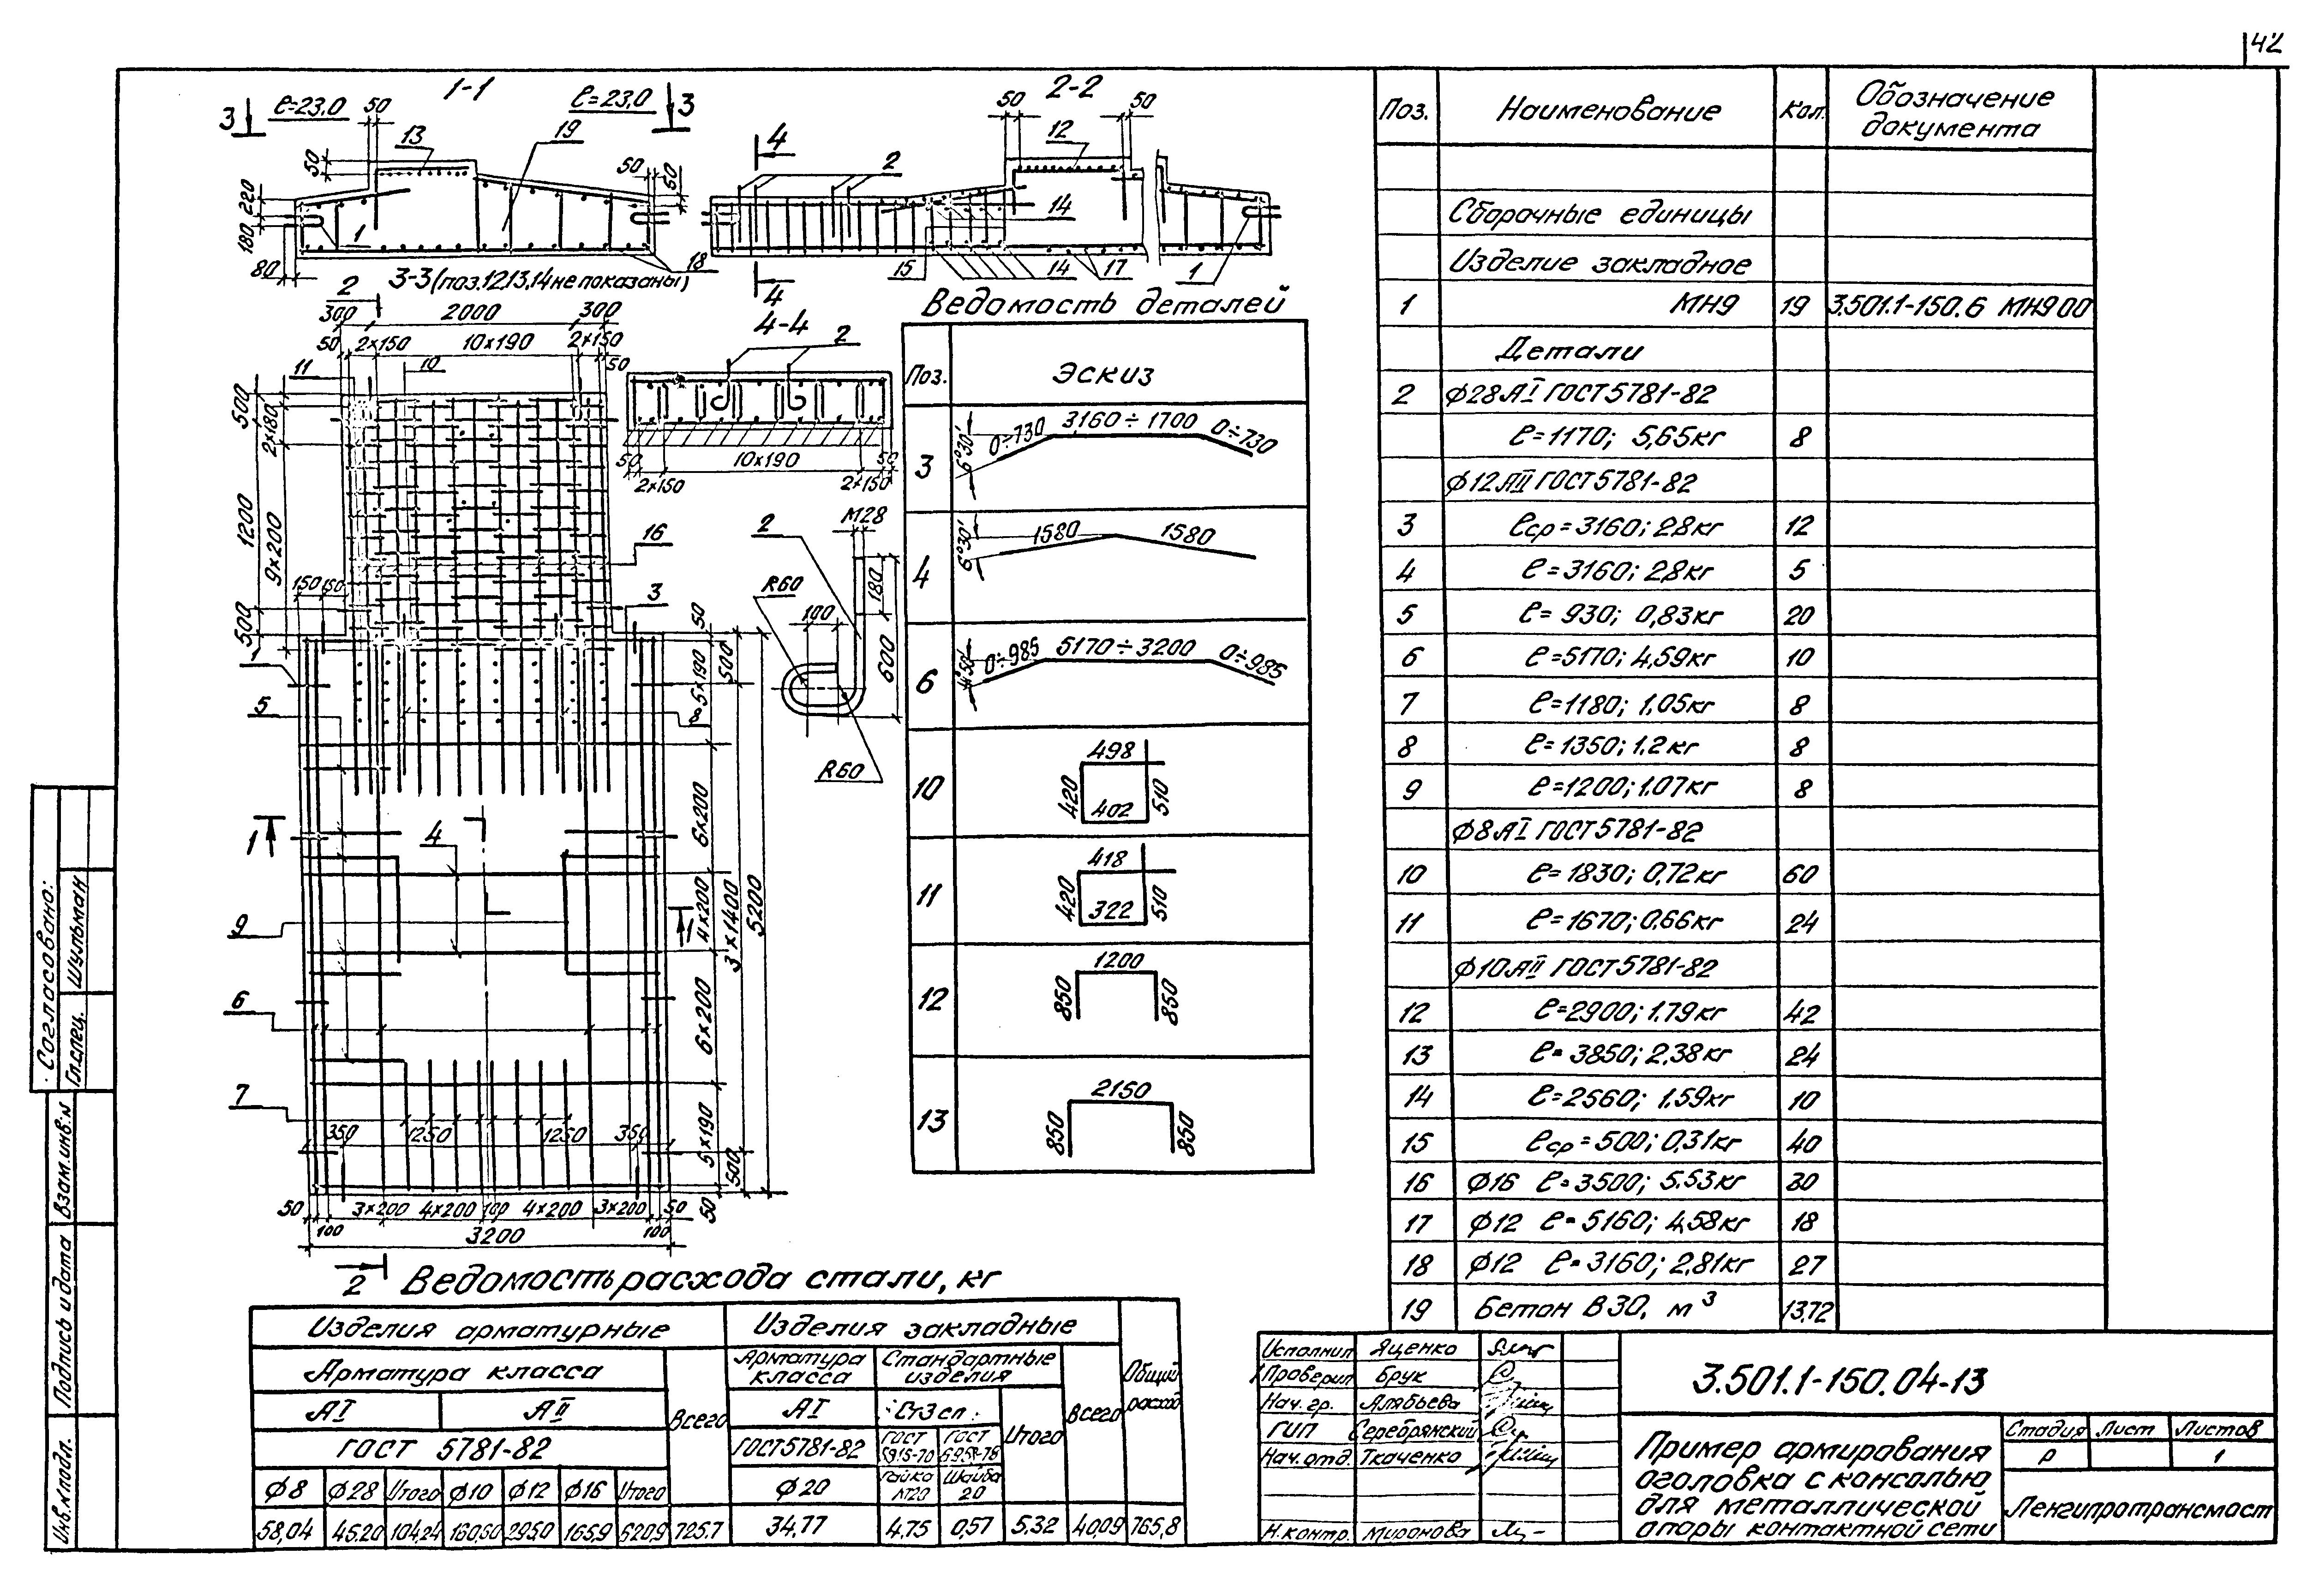 42
1-1
3
ℓ=23,0
50
ℓ=23,0
3
13
19
50
50
50
220
180
80
1
18
2-2
50
50
12
4
2
14
15
14
17
1
4
3-3 (поз.12,13,14 не показаны)
2
300
2000
300
50
2×150
10×190
2×150
50
11
10
500
2×180
1200
9×200
150
150
500
16
3
1
5
8
4
1
1
9
6
7
50
5×190
500
6×200
4×200
3×1400
5200
6×200
5×190
500
50
350
1250
1250
350
50
100
3×200
4×200
100
4×200
3×200
50
100
3200
2
4-4
2
50
10×190
50
2×150
2×150
М28
2
R60
100
180
600
R60
Ведомость деталей
Поз.
Эскиз
3
6°30'
0÷730
3160÷1700
0÷730
4
6°30'
1580
1580
6
4°50'
0÷985
5170÷3200
0÷985
10
498
420
402
510
11
418
420
322
510
12
1200
850
850
13
2150
850
850
Поз.
Наименование
Кол.
Обозначение документа
Сборочные единицы
Изделие закладное
1 МН9 19 3.501.1-150.6 МН9 00
Детали
2 ϕ28АI ГОСТ 5781-82
ℓ=1170; 5,65кг 8
ϕ12АII ГОСТ 5781-82
3 ℓср=3160; 2,8кг 12
4 ℓ=3160; 2,8кг 5
5 ℓ=930; 0,83кг 20
6 ℓ=5170; 4,59кг 10
7 ℓ=1180; 1,05кг 8
8 ℓ=1350; 1,2кг 8
9 ℓ=1200; 1,07кг 8
ϕ8АI ГОСТ 5781-82
10 ℓ=1830; 0,72кг 60
11 ℓ=1670; 0,66кг 24
ϕ10АII ГОСТ 5781-82
12 ℓ=2900; 1,79кг 42
13 ℓ=3850; 2,38кг 24
14 ℓ=2560; 1,59кг 10
15 ℓср=500; 0,31кг 40
16 ϕ16 ℓ=3500; 5,53кг 30
17 ϕ12 ℓ=5160; 4,58кг 18
18 ϕ12 ℓ=3160; 2,81кг 27
19 Бетон В30, м³ 13,72
Ведомость расхода стали, кг
Изделия арматурные
Изделия закладные
Общий расход
Арматура класса
Всего
Арматура класса
Стандартные изделия
Всего
АI
АII
АI
Ст3сп
Итого
ГОСТ 5781-82
ГОСТ 5781-82
ГОСТ 5915-70
ГОСТ
ϕ8 ϕ28 Итого ϕ10 ϕ12 ϕ16 Итого
ϕ20
Гайка М20
Шайба 20
58,04 45,20 104,24 160,60 295,0 165,9 620,9 725,7 34,77 4,75 0,57 5,32 40,09 765,8
Исполнил Яценко
Проверил Брук
Нач. гр. Алябьева
ГИП Серебрянский
Нач. отд. Ткаченко
Н.контр. Миронова
3.501.1-150.04-13
Пример армирования
оголовка с консолью
для металлической
опоры контактной сети
Стадия Лист Листов
Р 1
Ленгипротрансмост
Согласовано:
Гл.спец. Шульман
Взам.инв.№
Подпись и дата
Инв.№ подл.